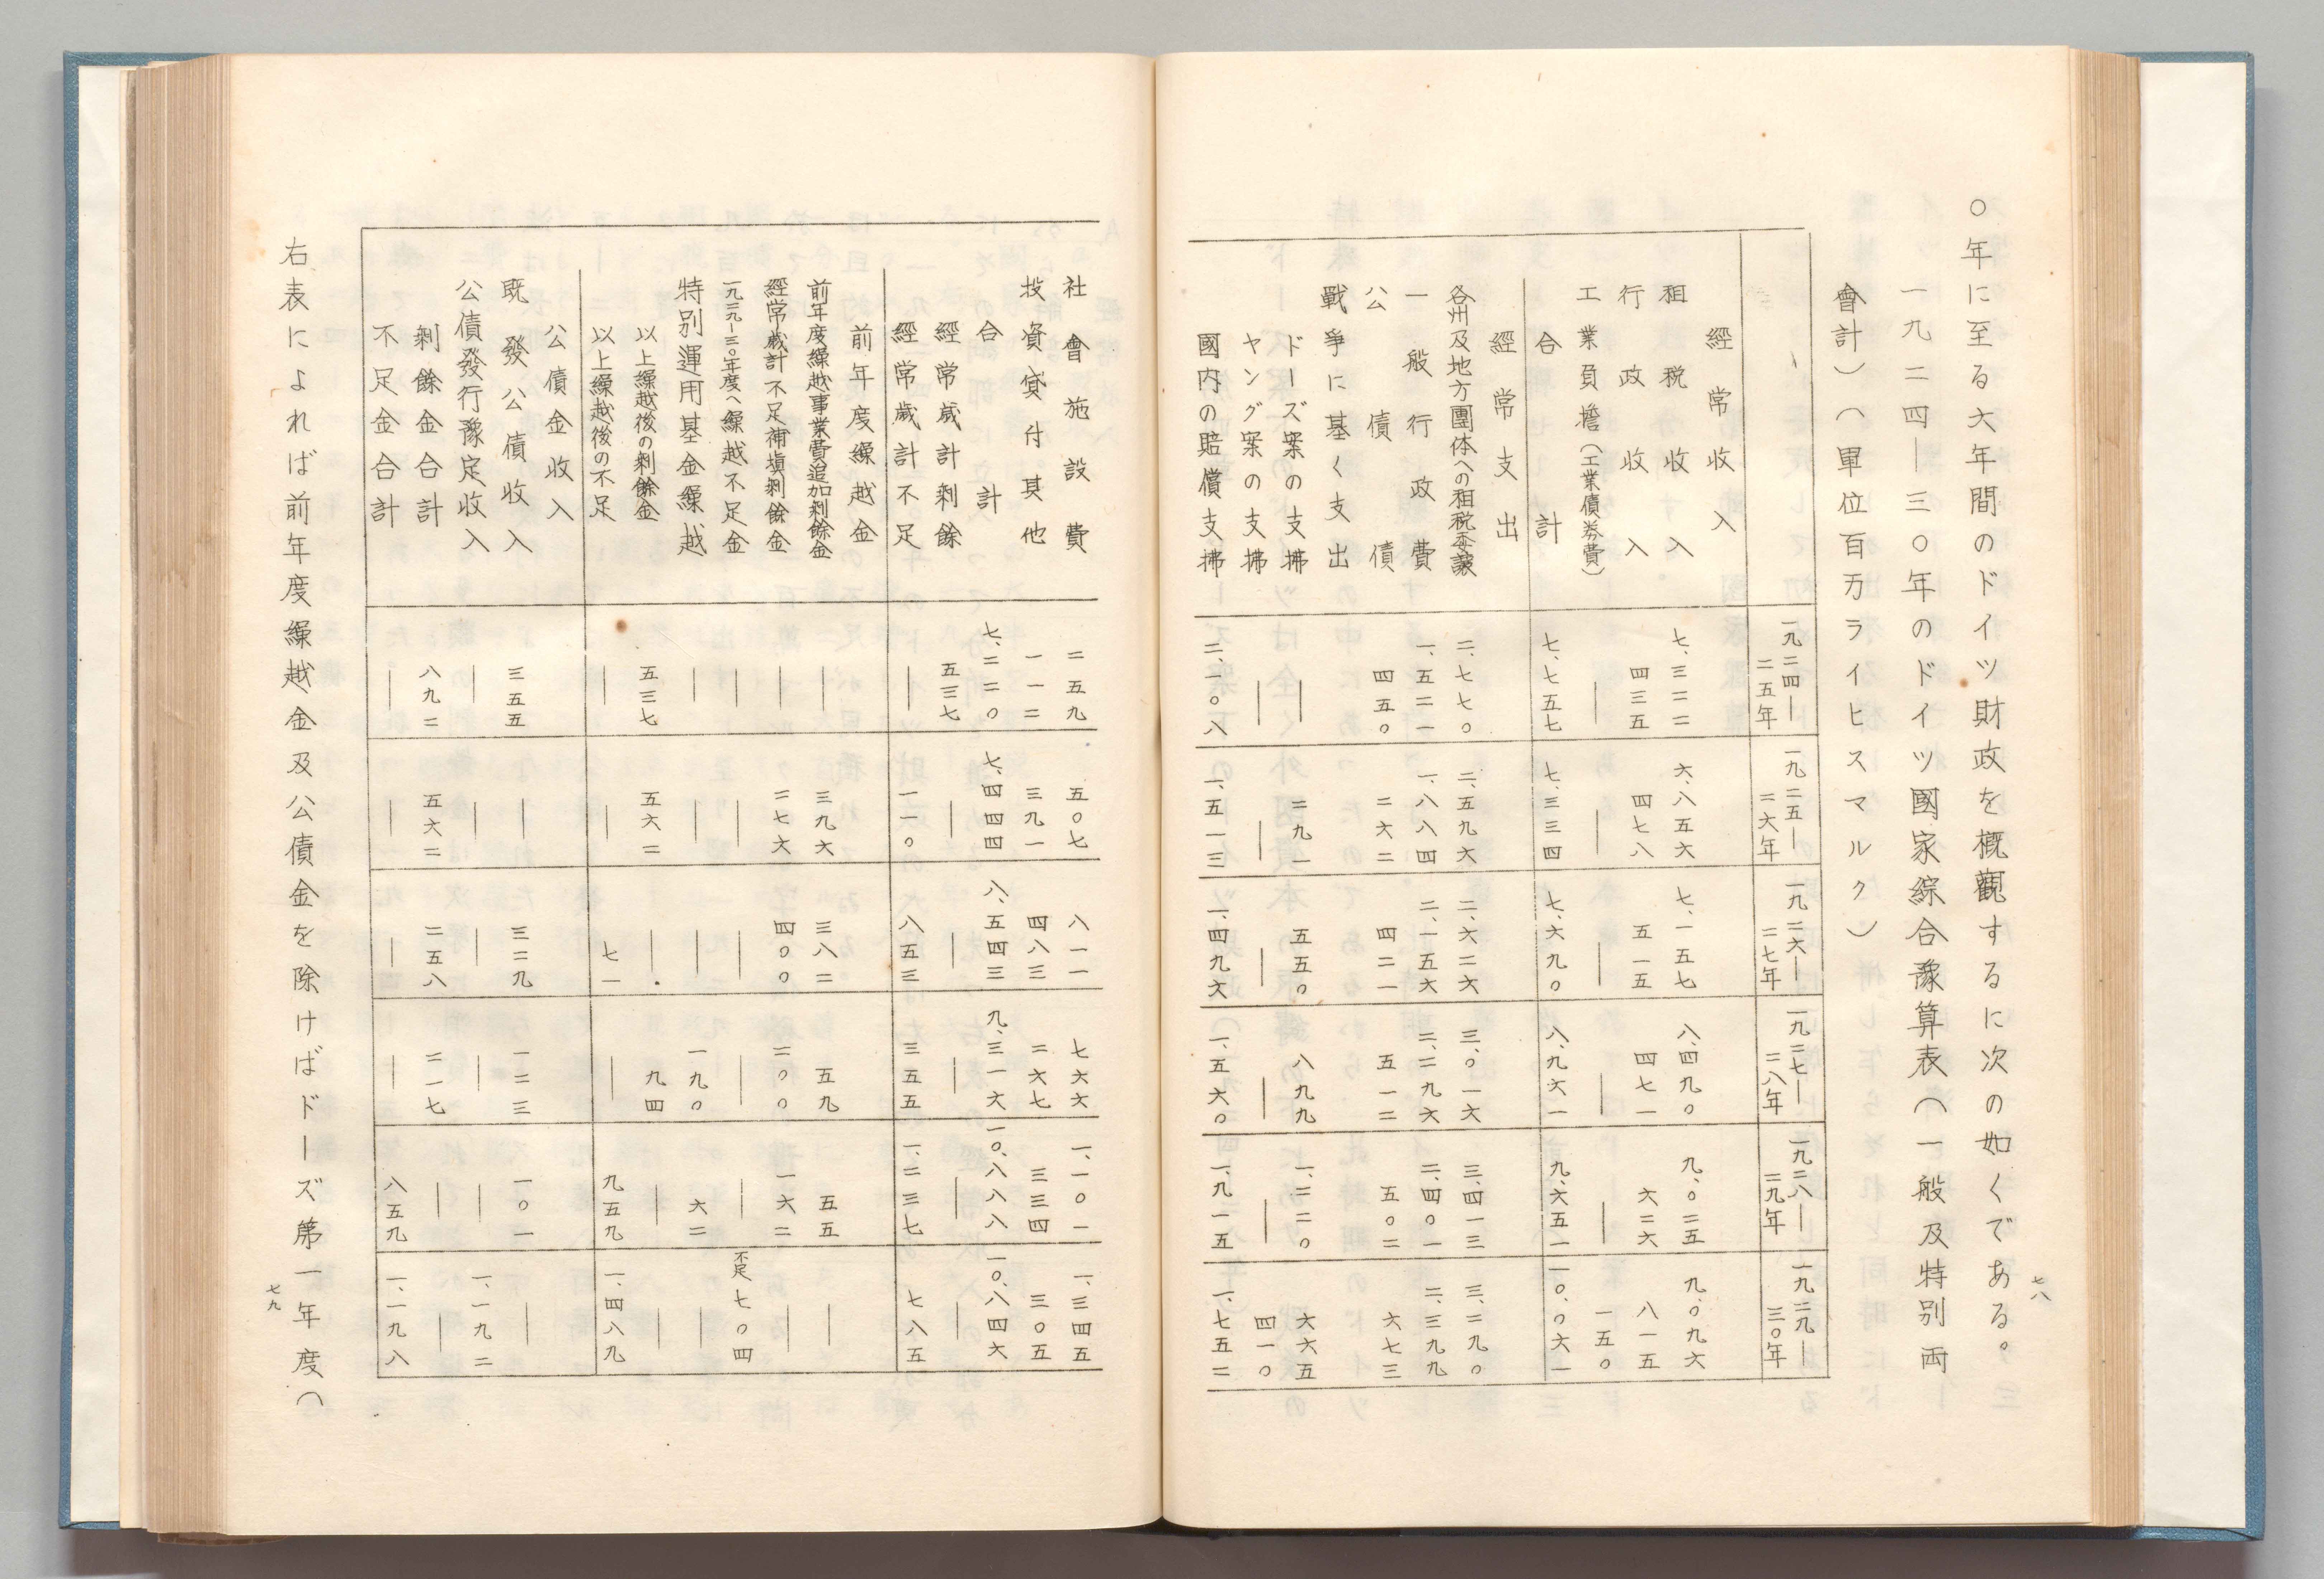 七八
〇年に至る六年間のドイツ財政を概觀するに次の如くである。
一九二四―三〇年のドイツ國家綜合豫算表（一般及特別両
會計）（單位百万ライヒスマルク）
一九二四―二五年 一九二五―二六年 一九二六―二七年 一九二七―二八年 一九二八―二九年 一九二九―三〇年
經常收入
租税收入 七、三二二 六、八五六 七、一五七 八、四九〇 九、〇二五 九、〇九六
行政收入 四三五 四七八 五一五 四七一 六二六 八一五
工業負擔（工業債券費） ― ― ― ― ― 一五〇
合計 七、七五七 七、三三四 七、六九〇 八、九六一 九、六五一 一〇、〇六一
經常支出
各州及地方團体への租税委譲 二、七七〇 二、五九六 二、六二六 三、〇一六 三、四一三 三、二九〇
一般行政費 一、五二一 一、八八四 二、一五六 二、二九六 二、四〇一 二、三九九
公債 四五〇 二六二 四二一 五一二 五〇二 六七三
戰爭に基く支出
ドーズ案の支拂 ― 二九一 五五〇 八九九 一、二二〇 六六五
ヤング案の支拂 ― ― ― ― ― 四一〇
國内の賠償支拂 二、一〇八 一、五一三 一、四九六 一、五六〇 一、九一五 一、七五二
社會施設費 二五九 五〇七 八一一 七六六 一、一〇一 一、三四五
投資貸付其他 一一二 三九一 四八三 二六七 三三四 三〇五
合計 七、二二〇 七、四四四 八、五四三 九、三一六 一〇、八八八 一〇、八四六
經常歳計剰餘 五三七 ― ― ― ― ―
經常歳計不足 ― 一一〇 八五三 三五五 一、二三七 七八五
前年度繰越金
前年度繰越事業費追加剰餘金 ― 三九六 三八二 五九 五五 ―
經常歳計不足補塡剰餘金 ― 二七六 四〇〇 二〇〇 一六二 ―
一九二九―三〇年度へ繰越不足金 ― ― ― ― ― 不足七〇四
特別運用基金繰越 ― ― ― 一九〇 六二 ―
以上繰越後の剰餘金 五三七 五六二 ― 九四 ― ―
以上繰越後の不足 ― ― 七一 ― 九五九 一、四八九
公債金收入
既發公債收入 三五五 ― 三二九 一二三 一〇一 ―
公債發行豫定收入 ― ― ― ― ― 一、一九二
剰餘金合計 八九二 五六二 二五八 二一七 ― ―
不足金合計 ― ― ― ― 八五九 一、一九八
右表によれば前年度繰越金及公債金を除けばドーズ第一年度（
七九